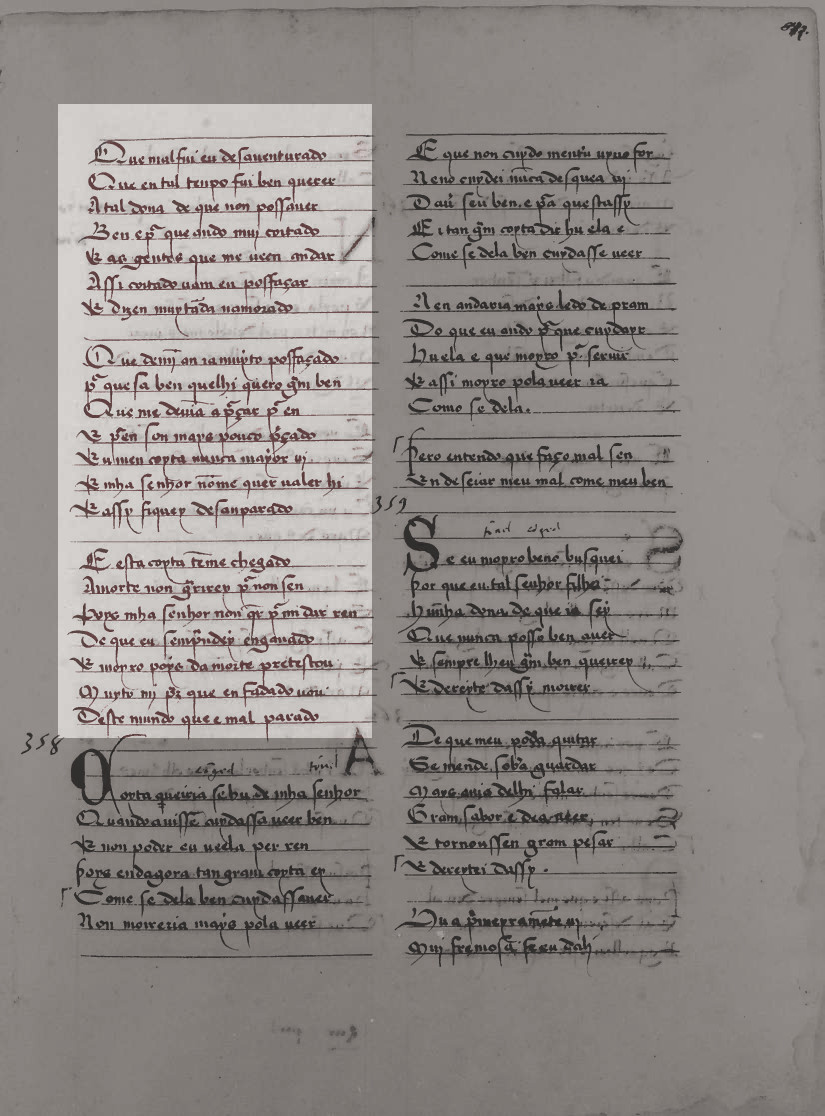 Que mal fui eu desauenturado
Que en tal tenpo fui ben querer
A tal dona de que non possauer
Ben e p̃ que ando mui coitado
E as gentes que me ueen andar
Assi coitado uam en possaçar
E dizen muytãda namorado
Que
p̃ que sa ben quelhi quero gm̃ ben
Que me deuiã a p̃çar p̃ en
E p̃en son mays pouco p̃çado
E u men coyta nunca mayor ui
E mha senhor nõme quer ualer hi
E assy fiquey desanparado
E esta coyta teme chegado
Amorte non p̃ non sen
Poys mha senhor non qr̃ p̃ mi dar ren
De que eu enganado
E moyro poys da morte
Muyto mi p̃z que en fadado uou
Deste mundo que e mal parado
358
Coyta queiria se hu de mha senhor
Quando auisse andassa ueer ben
E non poder eu ueela per ren
Poys endagora tan gram coyta ey
Come se dela ben cuydassauer
Non moireria mays pola ueer
E que non cuydo mentr̃ uyuo for
Neno cuydei nũca desquea ui
Dau̓ seu ben. e p̃a questassy
Ei tan gm̃ coyta dir hu ela e
Come se dela ben cuydasse ueer
Nen andaria mays ledo de pram
Do que eu ando p̃ que cuydar
Hu ela e que moyro p̃ seruir
E assi moyro pola ueer ia
Como se dela.
Pero entendo que faço mal sen
En deseiar meu mal come meu ben
359
Se eu moyro beno busquei
Por que eu tal senhor filhe
Hunha dona de que ia sey
Que nunca posso ben auer
E sempre lheu gm̃ ben querrey
E dereyte dassy morrer
De que meu podia quitar
Se mende soba guardar
Mays ania delhi falar
Gram sabor e dea ueer
E tornoussen gram pesar
E dereytei dassy.
Mui fremosa se eu dali